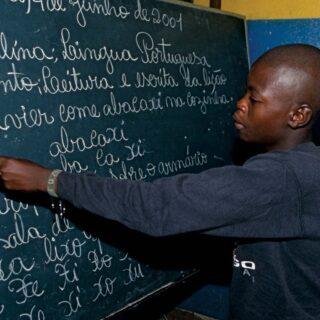 4 de Junho de 2001
lina: Lingua Portuguesa
nto: Leitura e escrita da lição
vier come abacaxi na cozinha
abacaxi
ba ca xi
sobre o armário
sala de
a lixo
xi xo
xe xi xo xu